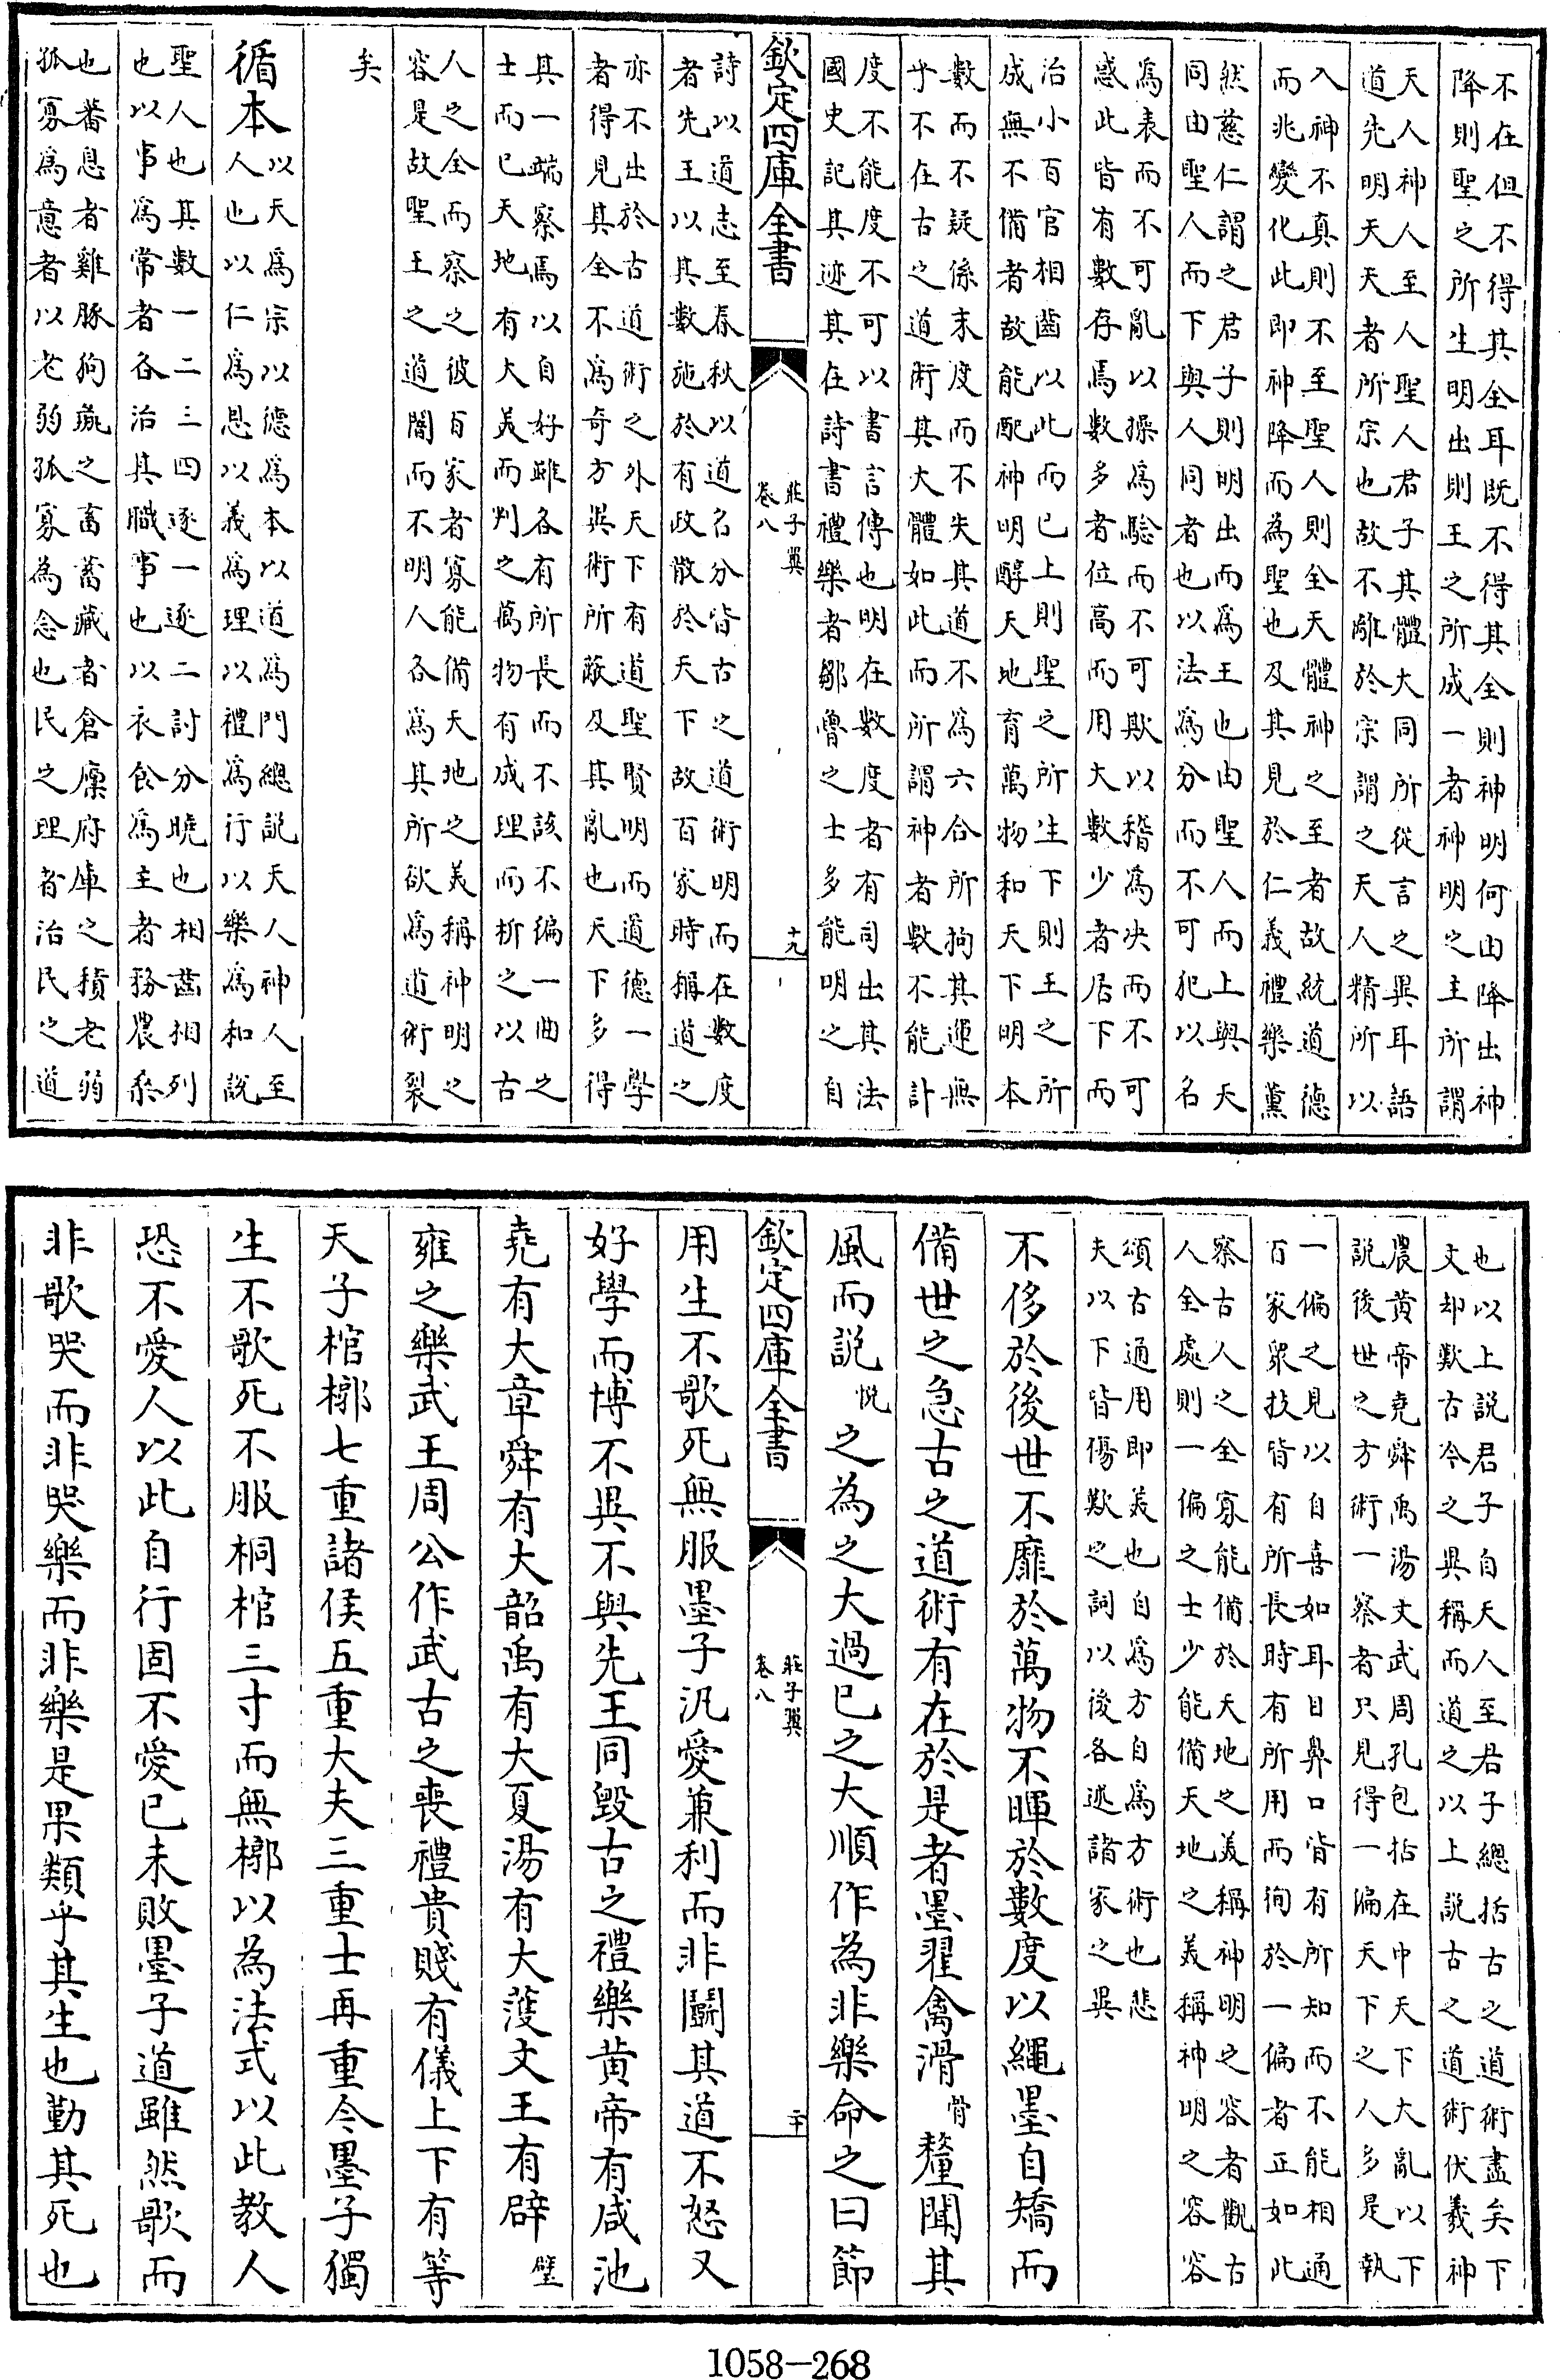 不在但不得其全耳既不得其全則神明何由降出神
降則聖之所生明出則王之所成一者神明之主所謂
天人神人至人聖人君子其體大同所從言之異耳語
道先明天天者所宗也故不離於宗謂之天人精所以
入神不真則不至聖人則全天體神之至者故統道德
而兆變化此即神降而為聖也及其見於仁義禮樂薰
然慈仁謂之君子則明出而為王也由聖人而上與天
同由聖人而下與人同者也以法為分而不可犯以名
為表而不可亂以操為驗而不可欺以稽為決而不可
惑此皆有數存焉數多者位高而用大數少者居下而
治小百官相齒以此而已上則聖之所生下則王之所
成無不備者故能配神明醇天地育萬物和天下明本
數而不疑係末度而不失其道不為六合所拘其運無
乎不在古之道術其大體如此而所謂神者數不能計
度不能度不可以書言傳也明在數度者有司出其法
國史記其迹其在詩書禮樂者鄒魯之士多能明之自
欽定四庫全書
莊子翼
卷八
十九
詩以道志至春秋以道名分皆古之道術明而在數度
者先王以其數施於有政散於天下故百家時稱道之
亦不出於古道術之外天下有道聖賢明而道德一學
者得見其全不為奇方異術所蔽及其亂也天下多得
其一端察焉以自好雖各有所長而不該不徧一曲之
士而已天地有大美而判之萬物有成理而析之以古
人之全而察之彼百家者寡能備天地之美稱神明之
容是故聖王之道闇而不明人各為其所欲為道術裂
矣
循本以天為宗以德為本以道為門總說天人神人至
人也以仁為恩以義為理以禮為行以樂為和說
聖人也其數一二三四逐一逐二討分曉也相齒相列
也以事為常者各治其職事也以衣食為主者務農桑
也蕃息者雞豚狗彘之畜蓄藏者倉廩府庫之積老弱
孤寡為意者以老弱孤寡為念也民之理者治民之道
也以上說君子自天人至君子總括古之道術盡矣下
文却歎古今之異稱而道之以上說古之道術伏羲神
農黃帝堯舜禹湯文武周孔包括在中天下大亂以下
說後世之方術一察者只見得一偏天下之人多是執
一偏之見以自喜如耳目鼻口皆有所知而不能相通
百家眾技皆有所長時有所用而徇於一偏者正如此
察古人之全寡能備於天地之美稱神明之容者觀古
人全處則一偏之士少能備天地之美稱神明之容容
頌古通用即美也自為方自為方術也悲
夫以下皆傷歎之詞以後各述諸家之異
不侈於後世不靡於萬物不暉於數度以繩墨自矯而
備世之急古之道術有在於是者墨翟禽滑骨釐聞其
風而說悅之為之大過已之大順作為非樂命之曰節
欽定四庫全書
莊子翼
卷八
二十
用生不歌死無服墨子汎愛兼利而非鬭其道不怒又
好學而博不異不與先王同毀古之禮樂黃帝有咸池
堯有大章舜有大韶禹有大夏湯有大濩文王有辟璧
雍之樂武王周公作武古之喪禮貴賤有儀上下有等
天子棺槨七重諸侯五重大夫三重士再重今墨子獨
生不歌死不服桐棺三寸而無槨以為法式以此教人
恐不愛人以此自行固不愛已未敗墨子道雖然歌而
非歌哭而非哭樂而非樂是果類乎其生也勤其死也
1058—268